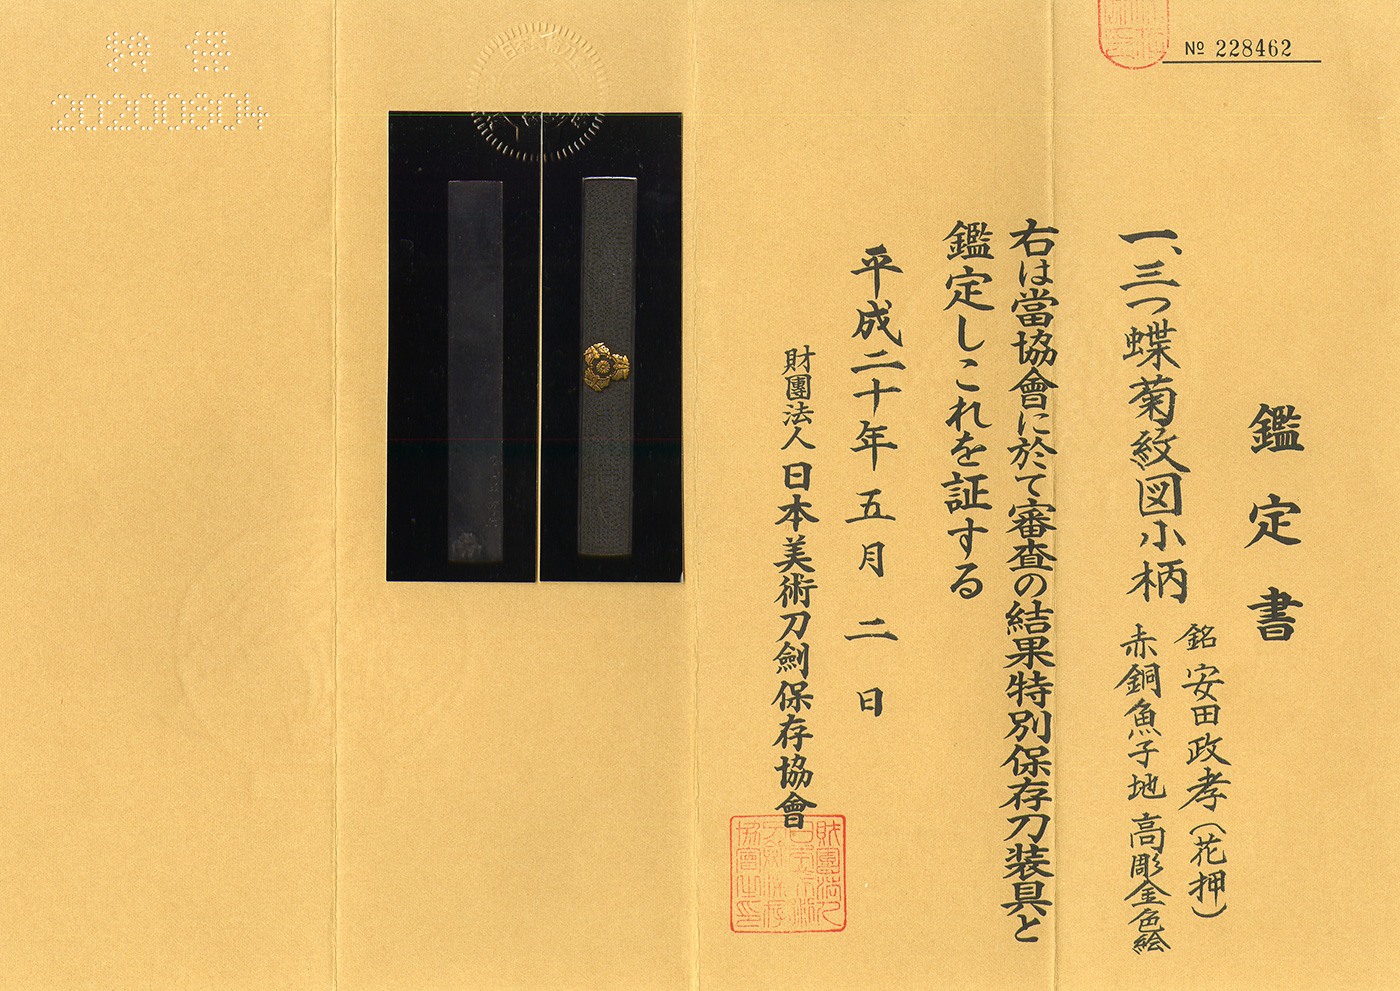 № 228462
鑑定書
一、三つ蝶菊紋図小柄
銘 安田政孝(花押)
赤銅魚子地 高彫金色絵
右は當協會に於て審査の結果特別保存刀装具と
鑑定しこれを証する
平成二十年五月二日
財團法人 日本美術刀劍保存協會
特保
20200804